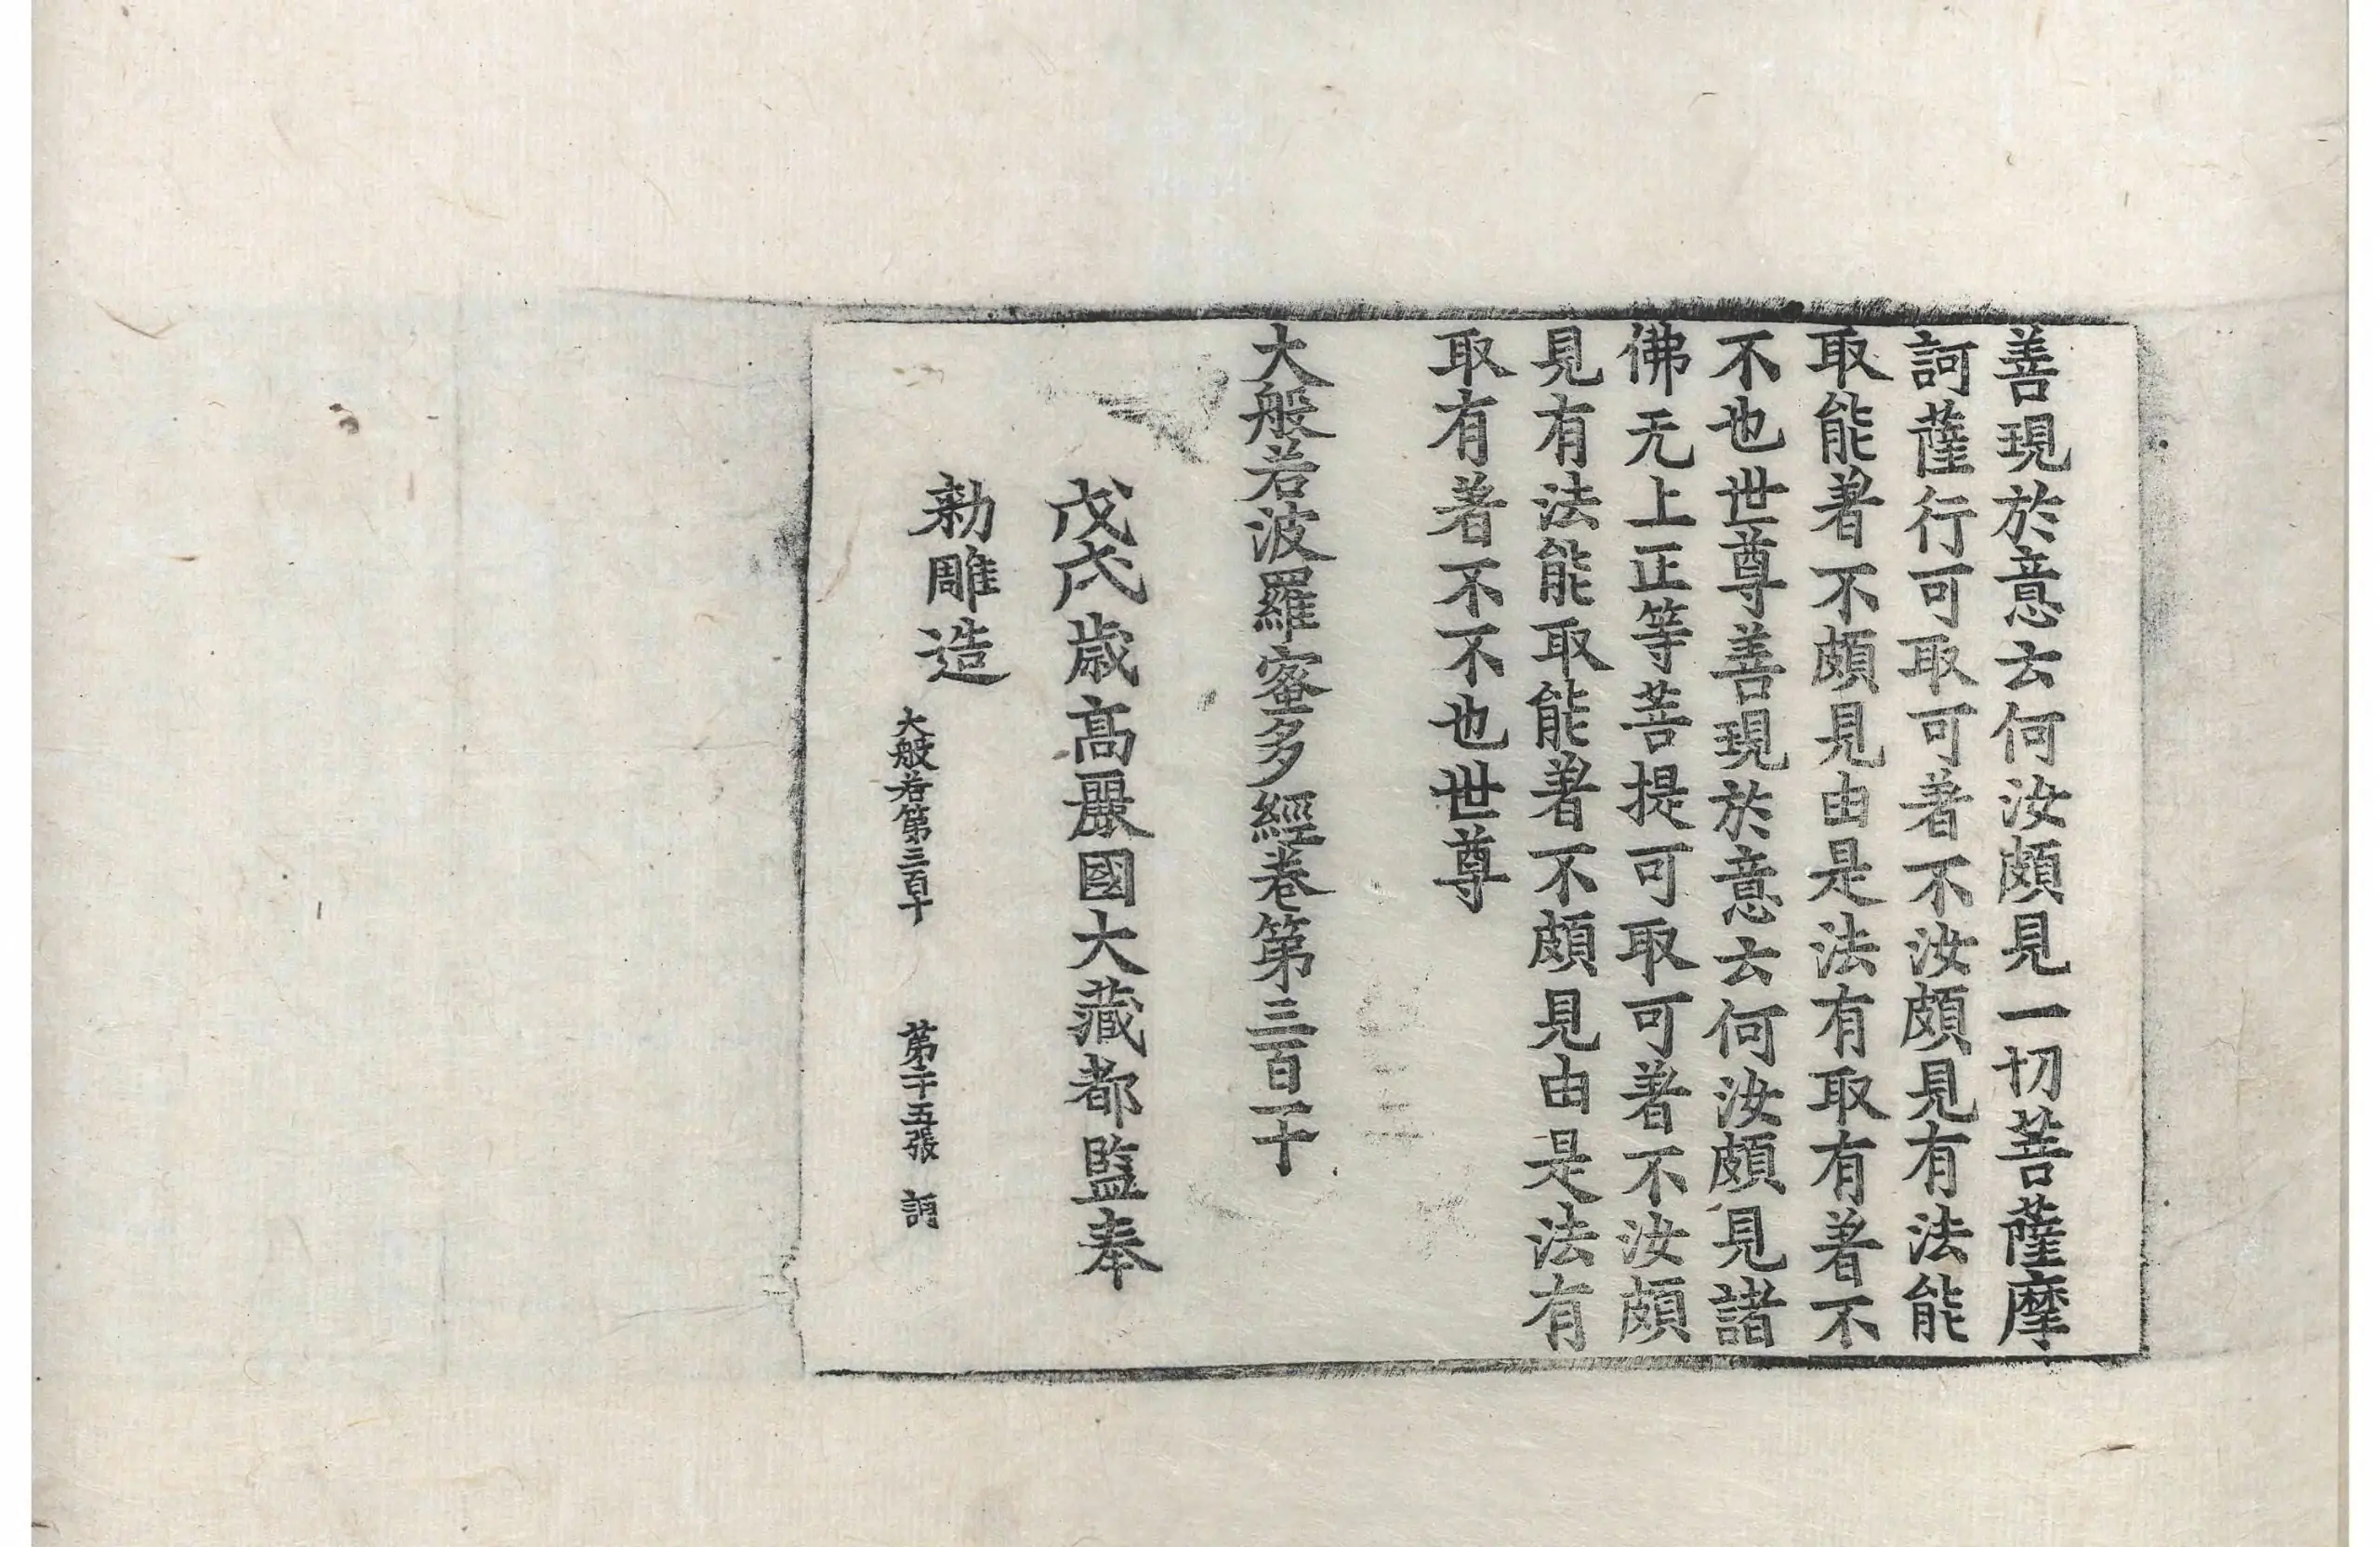 善現於意云何汝頗見一切菩薩摩
訶薩行可取可著不汝頗見有法能
取能著不頗見由是法有取有著不
不也世尊善現於意云何汝頗見諸
佛无上正等菩提可取可著不汝頗
見有法能取能著不頗見由是法有
取有著不不也世尊
大般若波羅蜜多經卷第三百一十
戊戌歳高麗國大藏都監奉
勅雕造
大般若第三百十
第二十五張